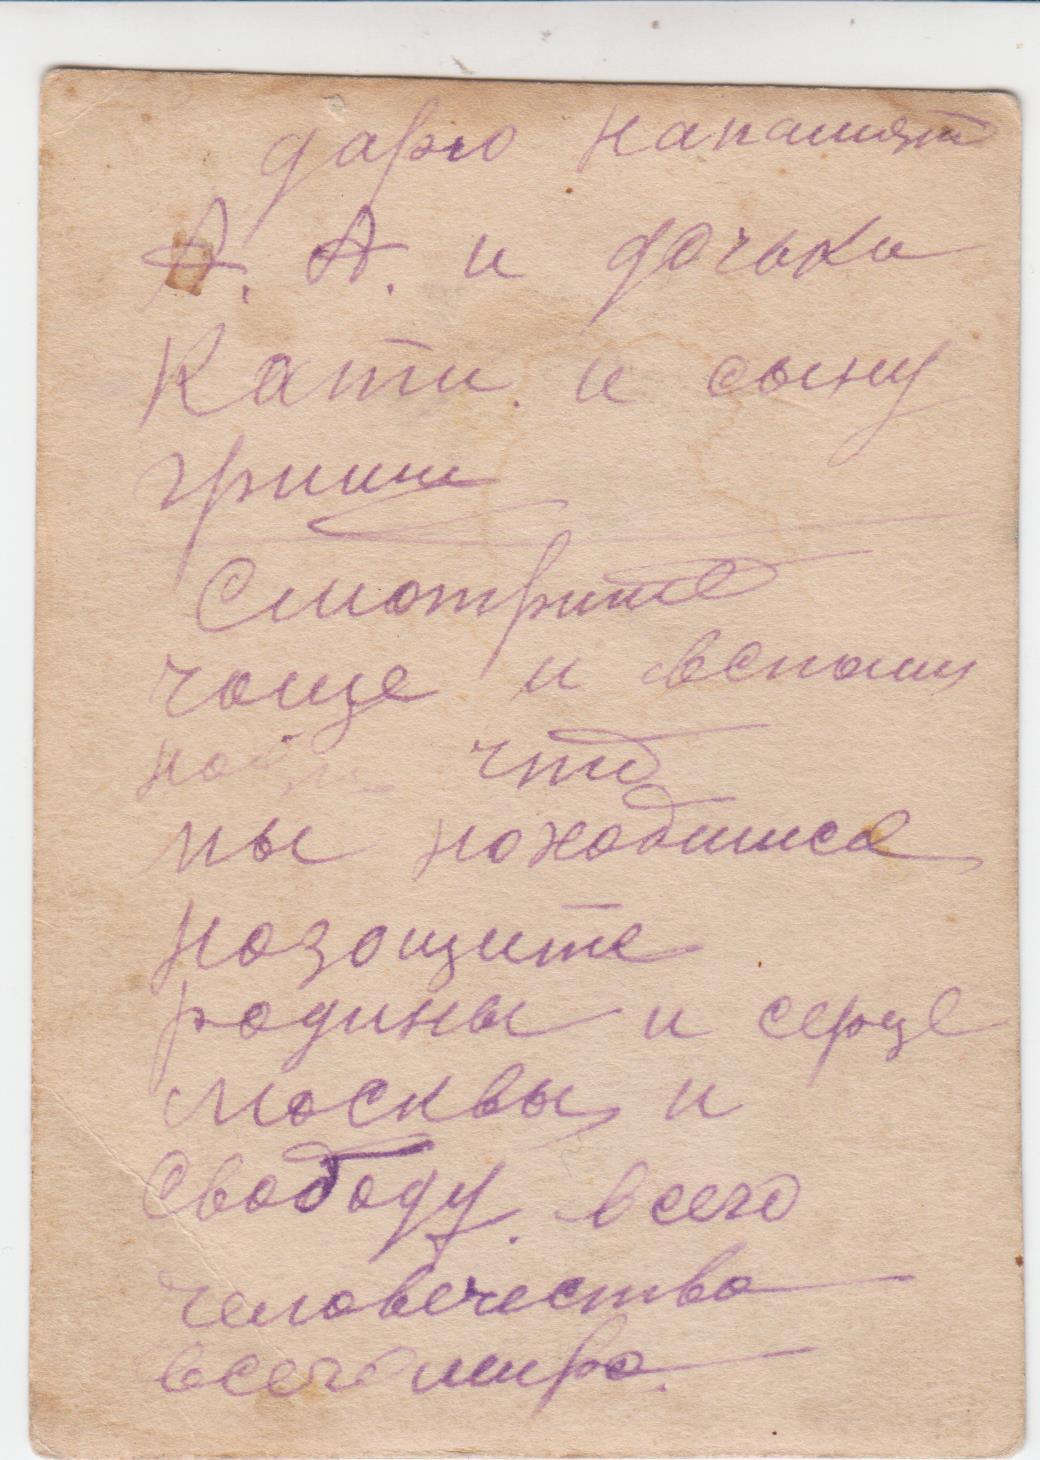 дарю напамят
А. А. и дочьки
Кати. и сыну
гриши
Смотрите
чаще и вспоми
что
мы находимся
назощите
родины и серце
москвы и
Свободу. всего
человечества
всего мира.